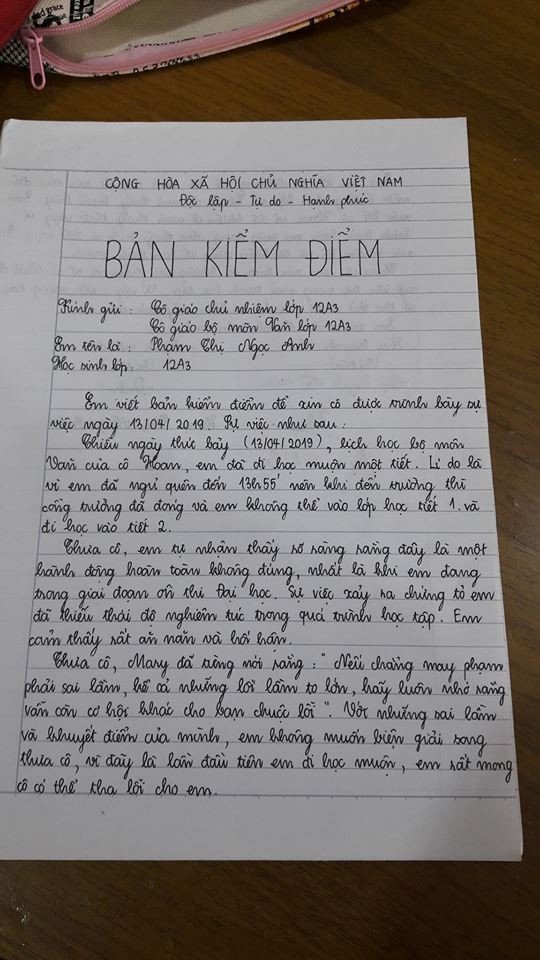 CỘNG HÒA XÃ HỘI CHỦ NGHĨA VIỆT NAM
Độc lập - Tự do - Hạnh phúc
BẢN KIỂM ĐIỂM
Kính gửi : Cô giáo chủ nhiệm lớp 12A3
Cô giáo bộ môn Văn lớp 12A3
Em tên là : Phạm Thị Ngọc Anh
Học sinh lớp: 12A3
Em viết bản kiểm điểm để xin cô được trình bày sự
việc ngày 13/04/2019. Sự việc như sau :
Chiều ngày thứ bảy (13/04/2019), lịch học bộ môn
Văn của cô Hoan, em đã đi học muộn một tiết. Lí do là
vì em đã ngủ quên đến 13h55' nên khi đến trường thì
cổng trường đã đóng và em không thể vào lớp học tiết 1. và
đi học vào tiết 2.
Thưa cô, em tự nhận thấy rõ ràng rằng đây là một
hành động hoàn toàn không đúng, nhất là khi em đang
trong giai đoạn ôn thi Đại học. Sự việc xảy ra chứng tỏ em
đã thiếu thái độ nghiêm túc trong quá trình học tập. Em
cảm thấy rất ăn năn và hối hận.
Thưa cô, Mary đã từng nói rằng : " Nếu chẳng may phạm
phải sai lầm, kể cả những lỗi lầm to lớn, hãy luôn nhớ rằng
vẫn còn cơ hội khác cho bạn chuộc lỗi ". Với những sai lầm
và khuyết điểm của mình, em không muốn biện giải song
thưa cô, vì đây là lần đầu tiên em đi học muộn, em rất mong
cô có thể tha lỗi cho em.